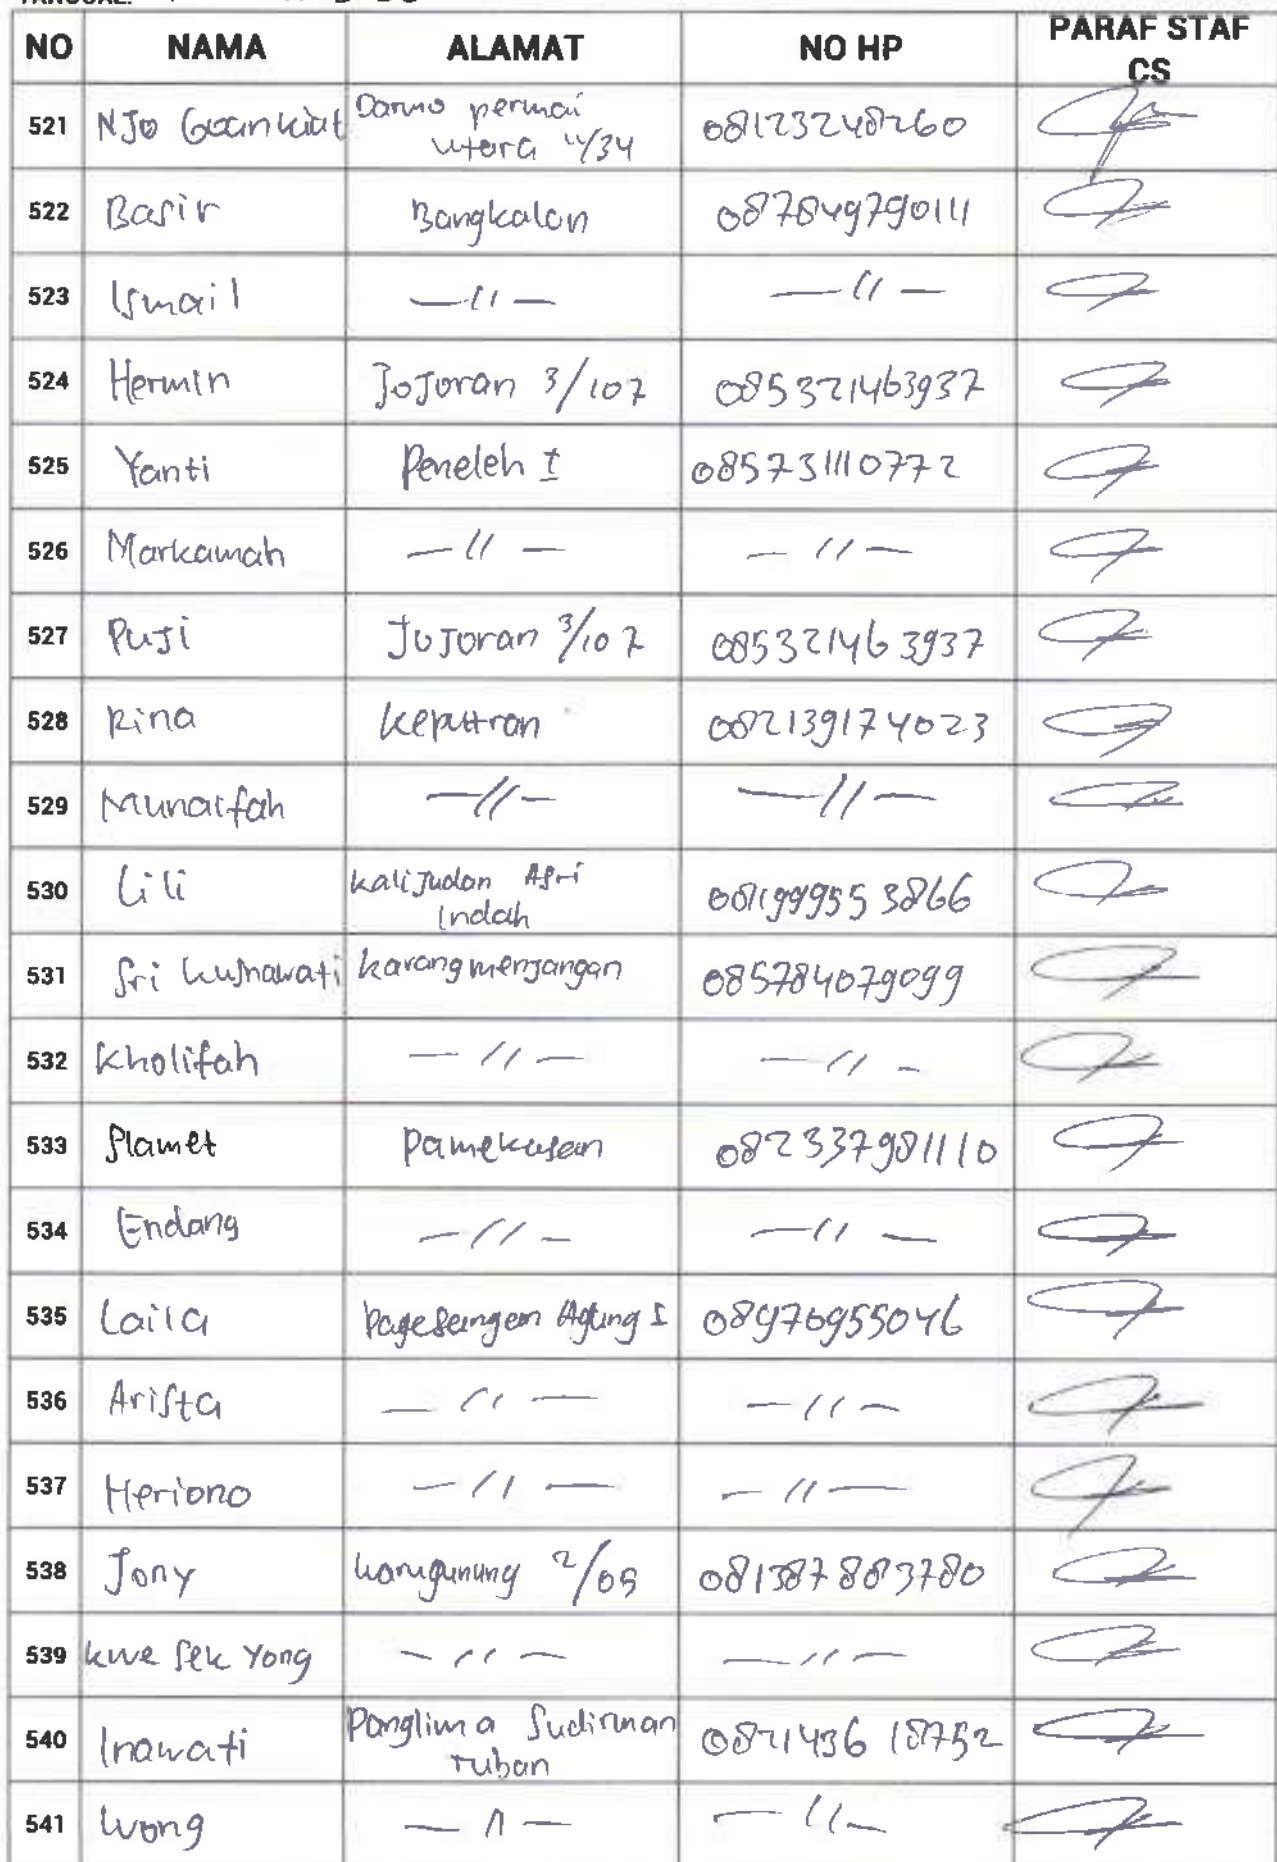 TANGGAL:
NO NAMA ALAMAT NO HP PARAF STAF
CS
521 NJO Goankiat Darmo permai 08123248260
utara 4/34
522 Basir Bangkalan 087849790111
523 Ismail —//— —//—
524 Hermin JoJoran 3/107 085321463937
525 Yanti Peneleh I 085731110772
526 Markamah —//— —//—
527 PuJi JoJoran 3/107 085321463937
528 Rina keputran 082139174023
529 Munaifah —//— —//—
530 Lili kaliJudan Asri 081199955 3866
Indah
531 Sri kusnawati karangmenjangan 085784079099
532 kholifah —//— —//—
533 Slamet Pamekasan 082337981110
534 Endang —//— —//—
535 Laila Pagesangan Agung I 08970955046
536 Arista —//— —//—
537 Heriono —//— —//—
538 Jony 2/05 081387883780
539 kwe sek Yong —//— —//—
540 Inawati Panglima Sudirman 0821436 18752
Tuban
541 Wong —//— —//—